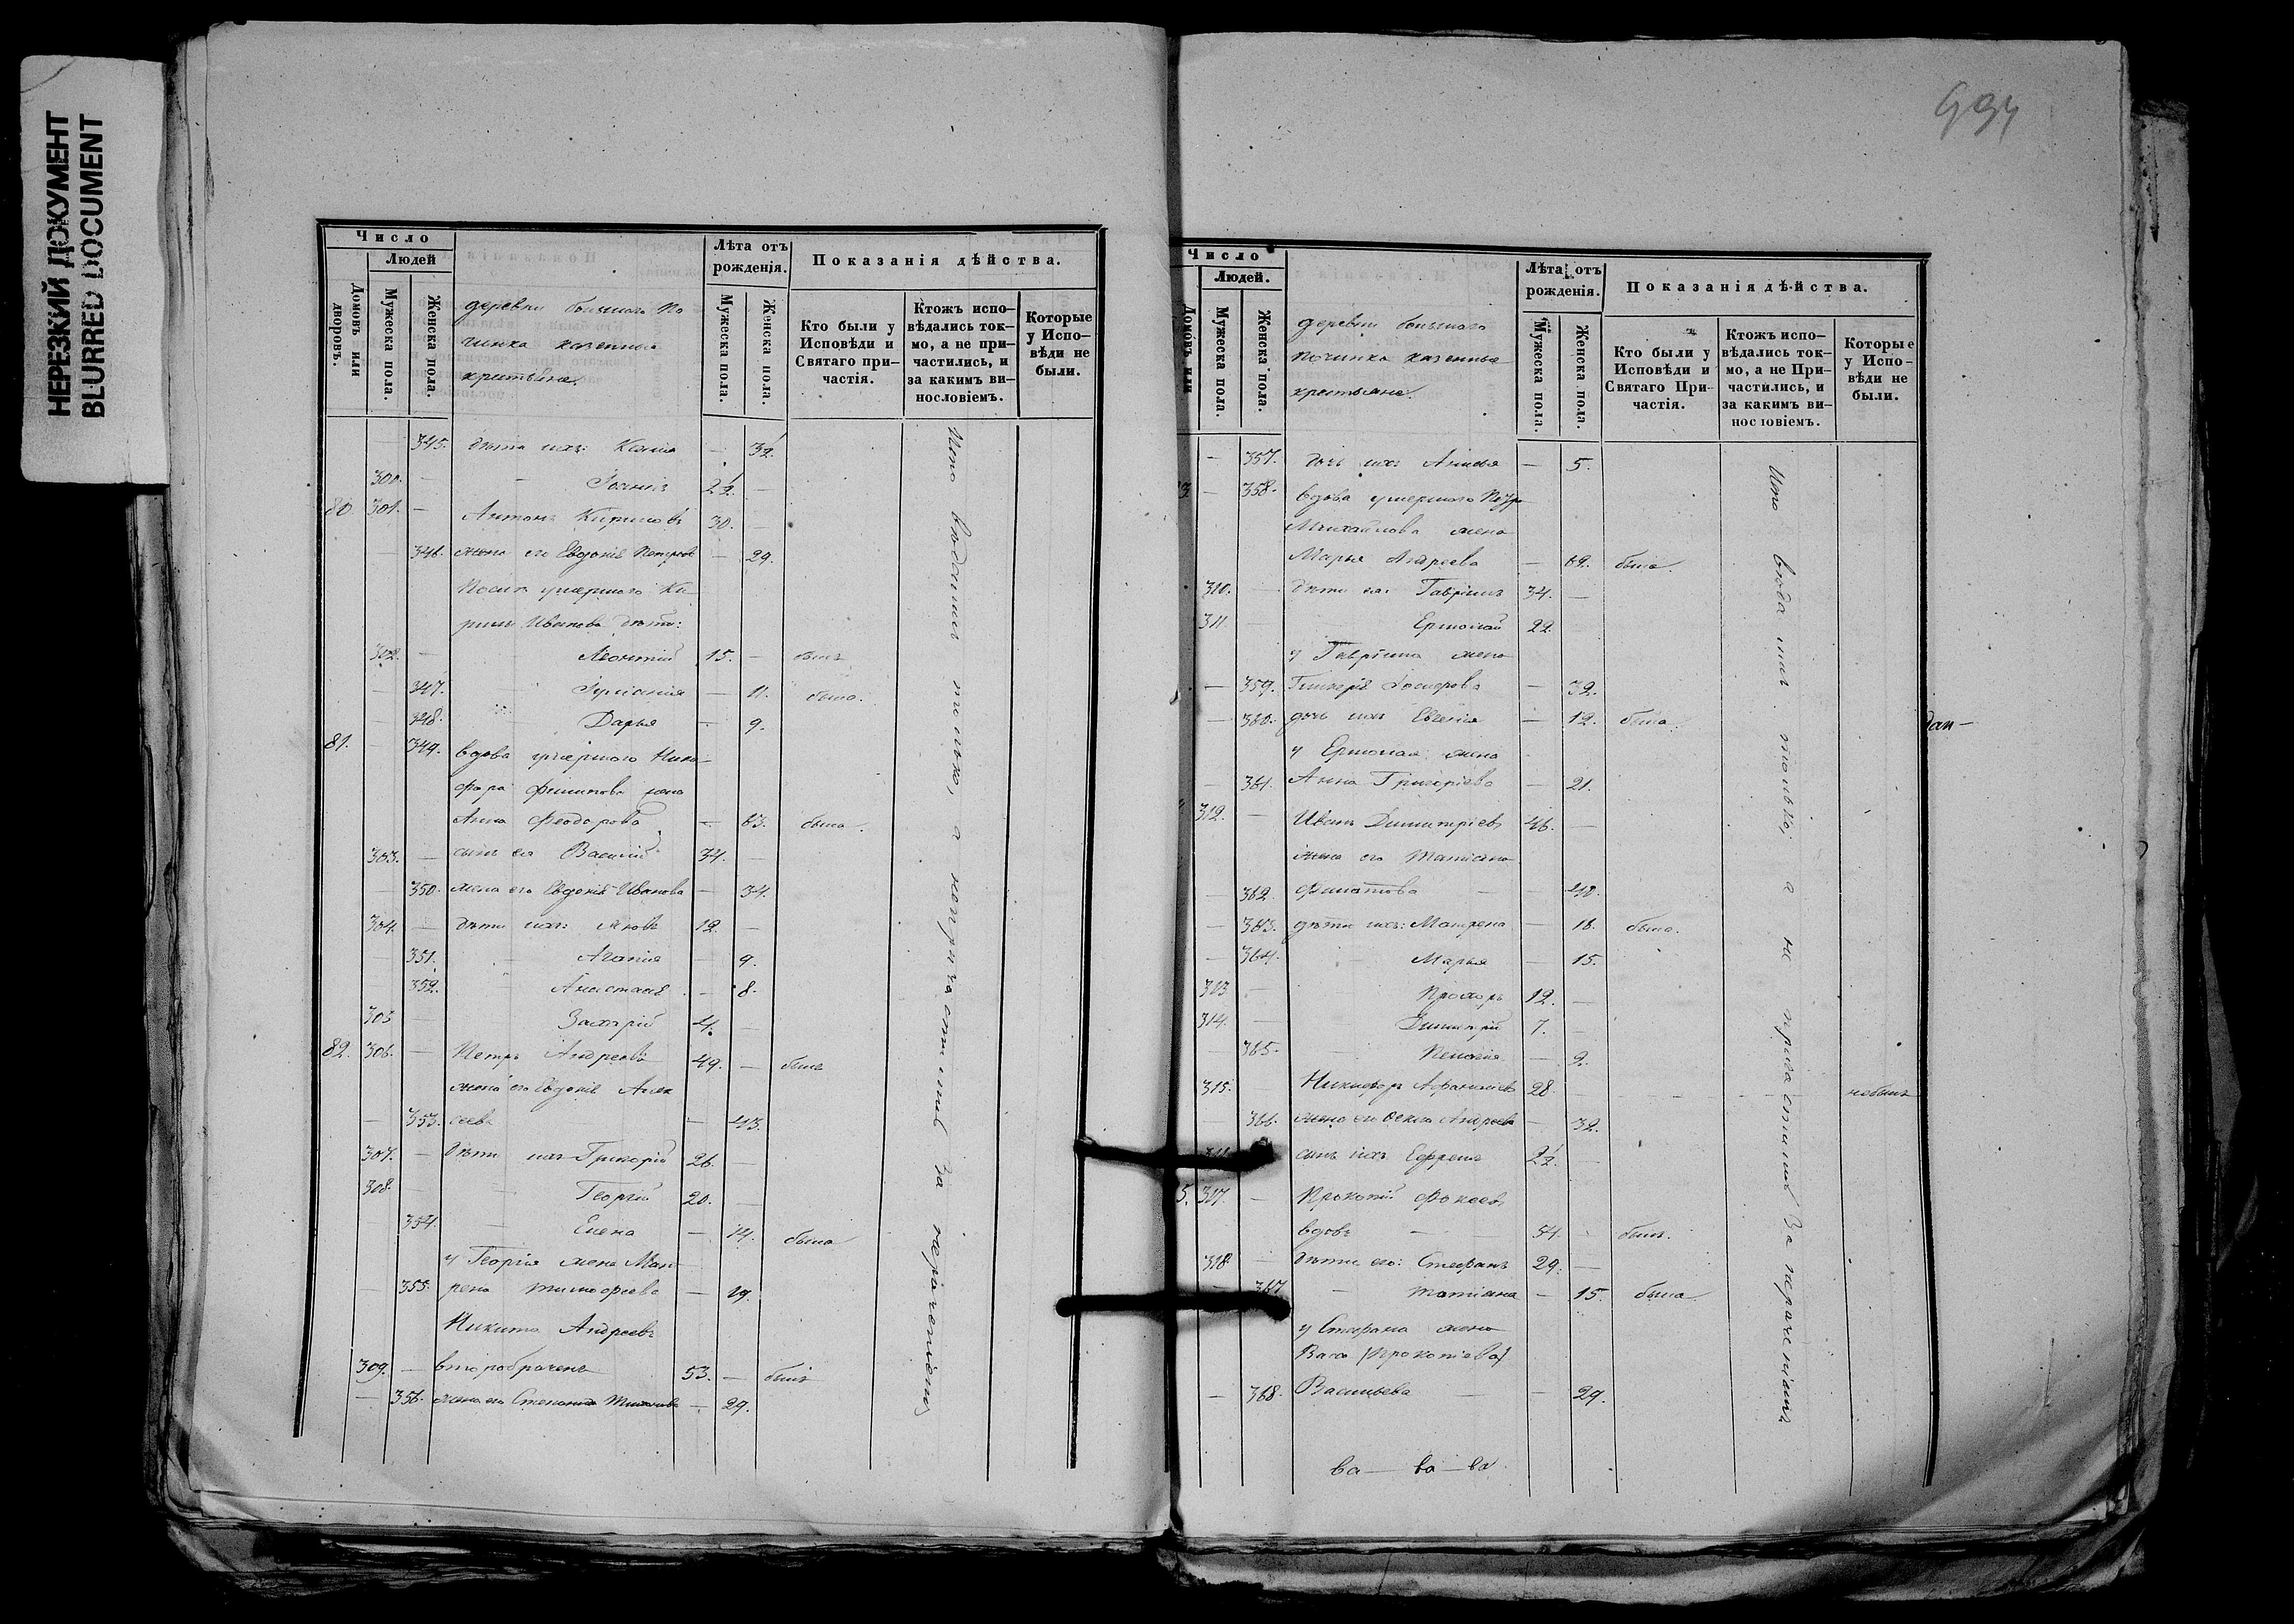 НЕРЕЗКИЙ ДОКУМЕНТ
BLURRED DOCUMENT
Число
Людей
Домовъ или дворовъ.
Мужеска пола.
Женска пола.
деревни большаго По
чинка казенныя
крестьяне.
Лѣта отъ рожденія.
Мужеска пола.
Женска пола.
Показанія дѣйства.
Кто были у Исповѣди и Святаго причастія.
Ктожъ исповѣдались токмо, а не причастились, и за какимъ винословіемъ.
Которые у Исповѣди не были.
345. дѣти ихъ: Ксенія –
300. – – Іоаннъ
80. 301. – Антонъ Кириловъ 30. –
– 346. жена его Евдокія Петрова – 29.
Послѣ умершаго Ки
рила Иванова дѣти:
302. – Леонтій 15. – былъ
– 347. Іуліанія – 11. была.
– 348. Дарья – 9.
81. – 349. вдова умершаго Ники
фора Филипова жена
Анна Феодорова – 63. была.
303. – сынъ ея Василій 34. –
– 350. жена его Евдокія Иванова – 34.
304. – дѣти ихъ: Яковъ 12. –
– 351. Агапія – 9.
– 352. Анастасія – 8.
305 – Захарій 4. –
82. 306. – Петръ Андреевъ 49. – былъ
жена его Евдокія Алек
– 353. сеева – 43.
307. – дѣти ихъ Григорій 26. –
308. – Георгій 20. –
354. Елена – 14. была
у Георгія жена Мат
– 355. рена Тимофеева – 19.
Никита Андреевъ
309. – второбраченъ 53. – былъ
– 356. жена его – 29.
только, а не причастились за нераченіемъ
994
Число
Людей.
Домовъ или
Мужеска пола.
Женска пола.
деревни большаго
починка казенныя
крестьяне.
Лѣта отъ рожденія.
Мужеска пола.
Женска пола.
Показанія дѣйства.
Кто были у Исповѣди и Святаго Причастія.
Ктожъ исповѣдались токмо, а не Причастились, и за какимъ винословіемъ.
Которые у Исповѣди не были.
– 357. дочь ихъ – 5.
3. – 358. вдова умершаго Петра
Михайлова жена
Марья Андреева – 62. была.
310. – дѣти ея: Гавріилъ 34. –
311 – Ермолай 22.
у Гавріила жена
– 359. Гликерія – 32.
– 360. дочь ихъ Евгенія – 12. была
у Ермолая жена
– 361. Анна Григоріева – 21.
312. – Иванъ Димитріевъ 46. –
жена его Татіана
– 362 Филатова – 48.
– 363. дѣти ихъ: Матрена – 18. была.
– 364. Марья – 15.
313 – Прохоръ 12. –
314. – Димитрій 7. –
– 365. Пелагія – 2.
315. Никифоръ Афанасіевъ 28. небылъ
– 366. жена его Андреева – 32.
сынъ ихъ Ефремъ
5. 317. – Прокопій Фокеевъ
вдовъ – 54. – былъ.
318. – дѣти его: Стефанъ 29. –
– 367 – Татіана – 15. была
у Стефана жена
Васса (Прокопіева)
– 368. Васильева – – 29.
ва – ва – ва
только, а не причастились За нераченіемъ
дан–